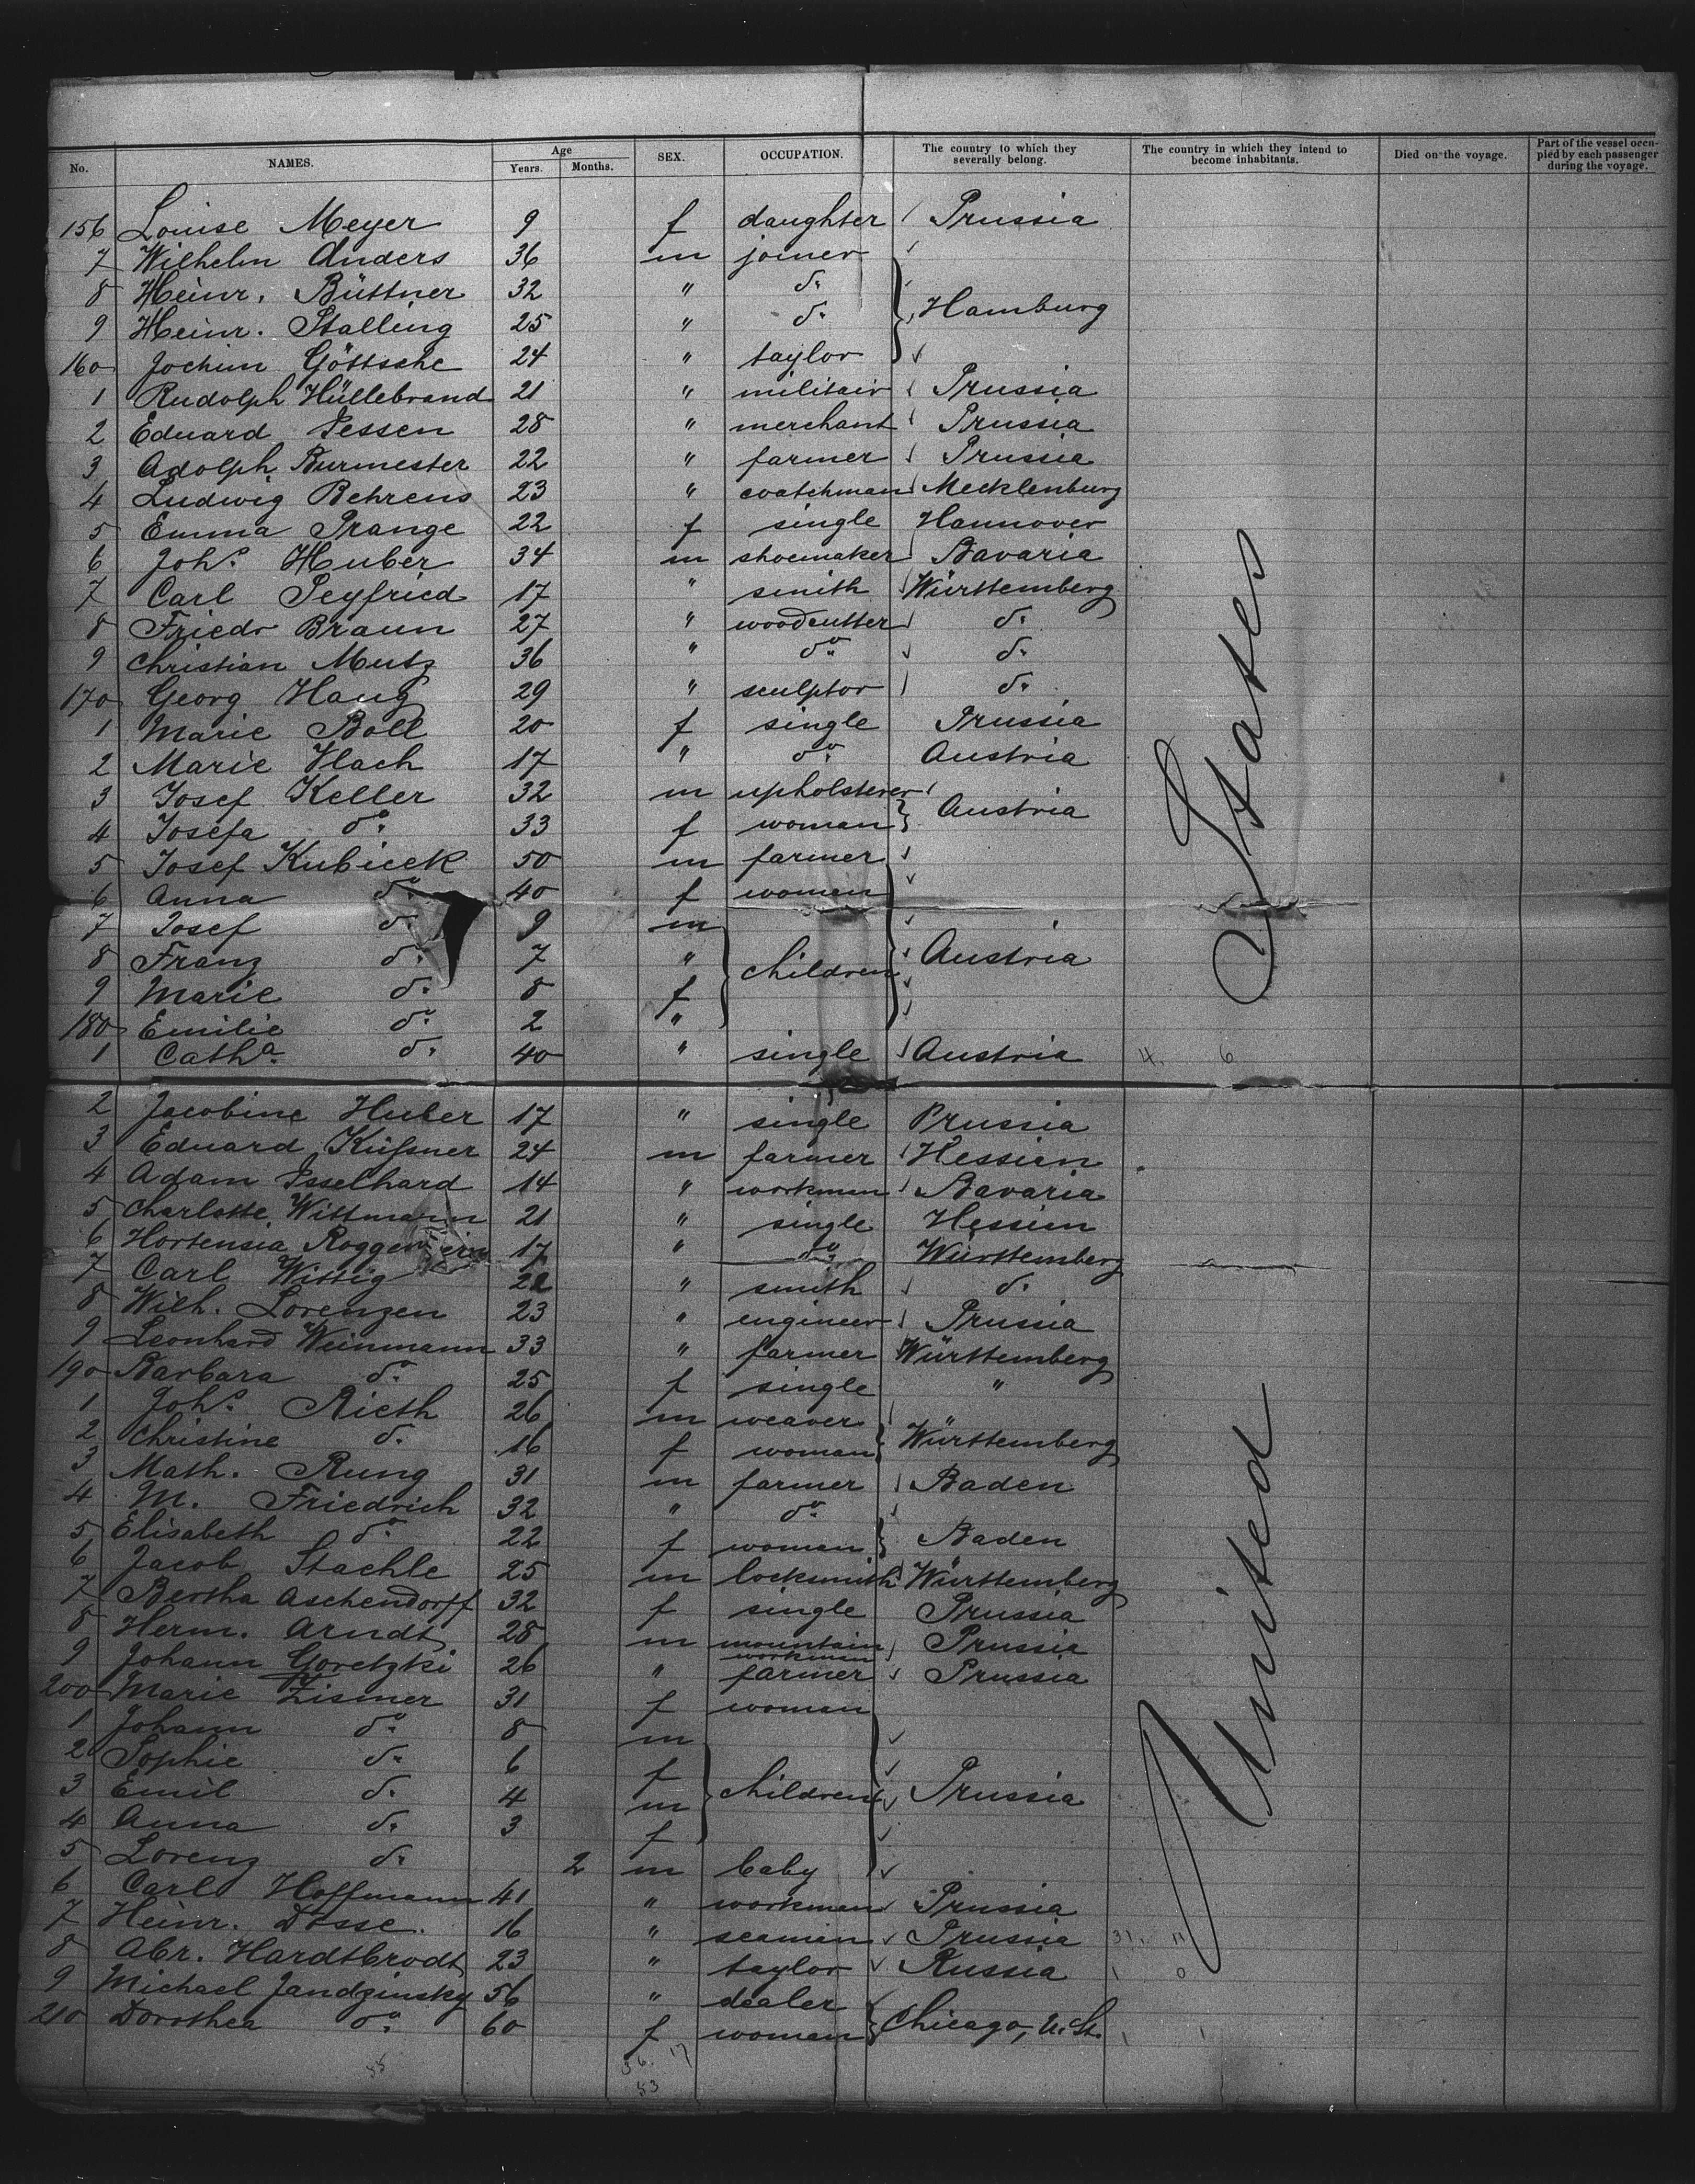 No. NAMES. Age Years. Months. SEX. OCCUPATION. The country to which they severally belong. The country in which they intend to become inhabitants. Died on the voyage. Part of the vessel occupied by each passenger during the voyage.
156 Louise Meyer 9 f daughter Prussia
7 Wilhelm Anders 36 m joiner
8 Heinr. Büttner 32 " do. Hamburg
9 Heinr. Stalling 25 " do.
160 Jochim Göttsche 24 " taylor
1 Rudolph Hüllebrand 21 " militair Prussia
2 Eduard Jessen 28 " merchant Prussia
3 Adolph Burmester 22 " farmer Prussia
4 Ludwig Behrens 23 " coatchman Mecklenburg
5 Emma Prange 22 f single Hannover
6 Johs. Huber 34 m shoemaker Bavaria
7 Carl Seyfried 17 " smith Württemberg
8 Friedr Braun 27 " woodcutter do.
9 Christian Mutz 36 " do. do.
170 Georg Haug 29 " sculptor do.
1 Marie Boll 20 f single Prussia
2 Marie Vlach 17 " do. Austria
3 Josef Keller 32 m upholsterer Austria
4 Josefa do. 33 f woman
5 Josef Kubicek 50 m farmer
6 Anna do. 40 f woman
7 Josef do. 9 m
8 Franz do. 7 " children Austria
9 Marie do. 8 f
180 Emilie do. 2 "
1 Catha. do. 40 " single Austria 4. 6
2 Jacobine Huber 17 " single Prussia
3 Eduard Küßner 24 m farmer Hessien
4 Adam Isselhard 14 " workman Bavaria
5 Charlotte Wittmann 21 " single Hessien
6 Hortensia 17 " do. Württemberg
7 Carl Wittig 22 " smith do.
8 Wilh. Lorenzen 23 " engineer Prussia
9 Leonhard Weinmann 33 " farmer Württemberg
190 Barbara do. 25 f single "
1 Johs. Rieth 26 m weaver Württemberg
2 Christine do. 16 f woman
3 Math. Rung 31 m farmer Baden
4 M. Friedrich 32 " do.
5 Elisabeth do. 22 f woman Baden
6 Jacob Staehle 25 m locksmith Württemberg
7 Bertha Aschendorff 32 f single Prussia
8 Herm. Arndt 28 m mountain workman Prussia
9 Johann Goretzki 26 " farmer Prussia
200 Marie Zismer 31 f woman
1 Johann do. 8 m
2 Sophie do. 6 f
3 Emil do. 4 m children Prussia
4 Anna do. 3 f
5 Lorenz do. 2 m baby
6 Carl Hoffmann 41 " workman Prussia
7 Heinr. Dosse. 16 " seaman Prussia 31. 11
8 Abr. Hardtbrodt 23 " taylor Russia 1 0
9 Michael Jandzinsky 56 " dealer
210 Dorothea do. 60 f woman Chicago, U. St. 1 1
36. 17
53
United States